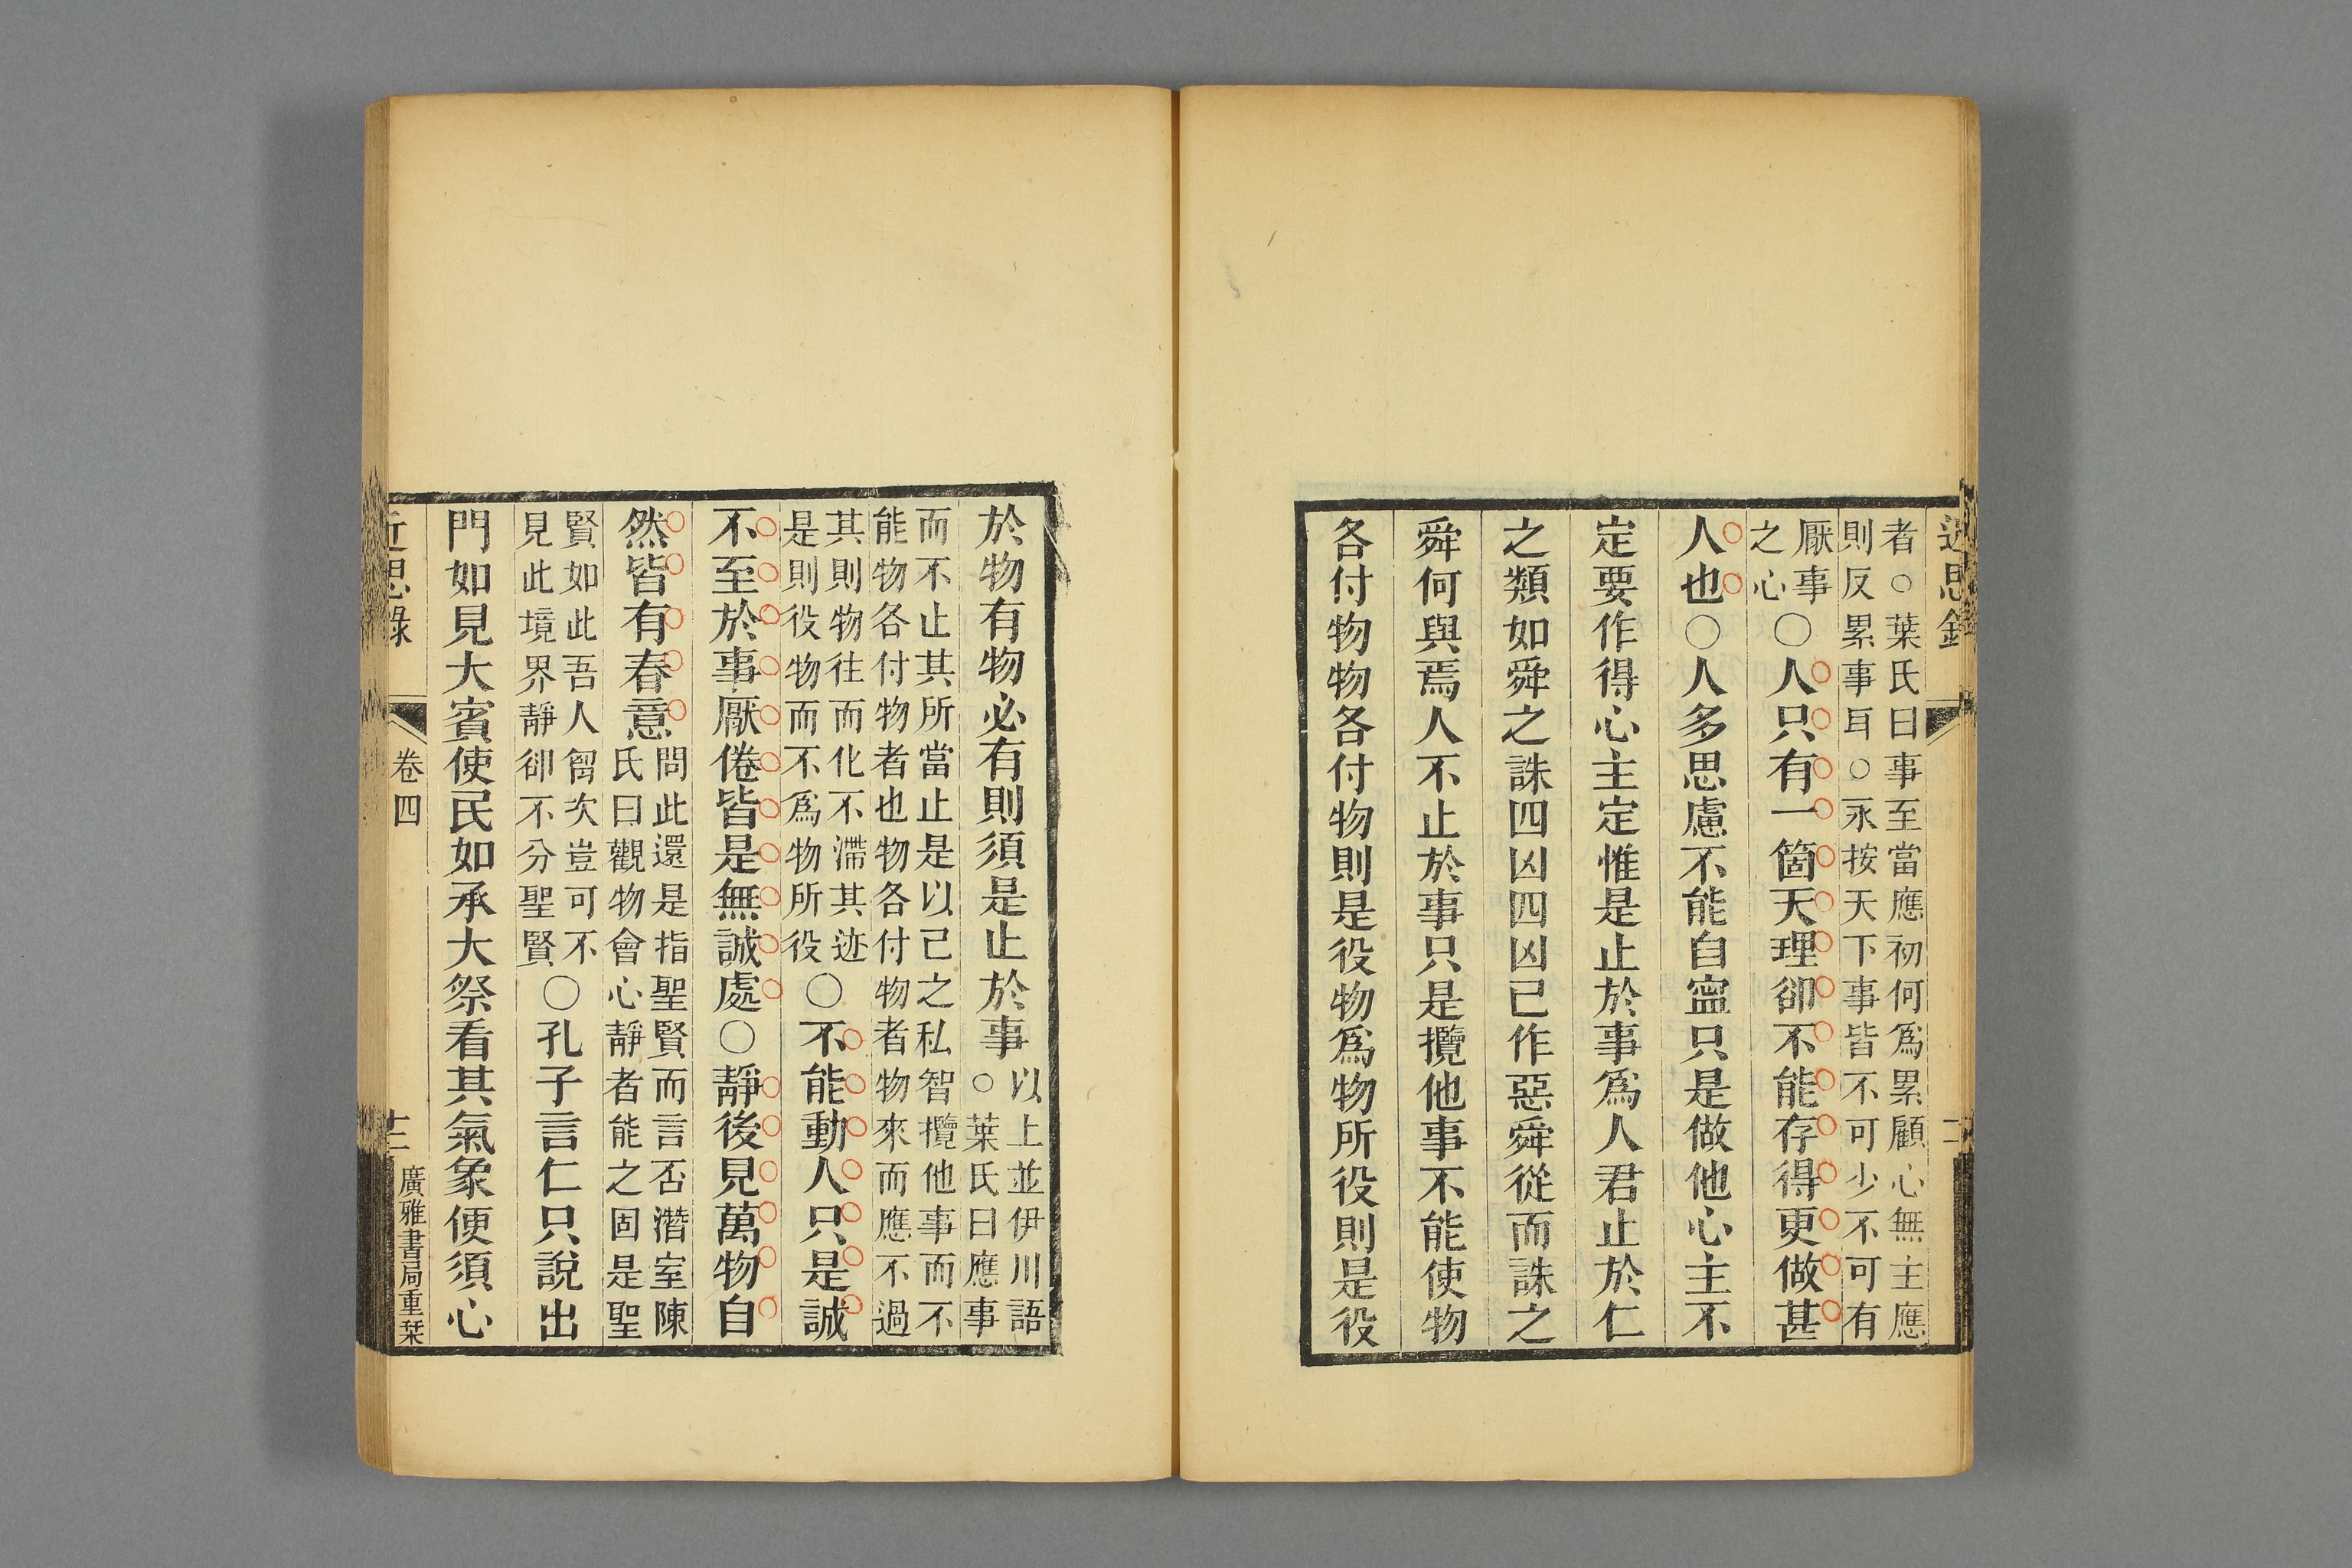 者○葉氏曰事至當應初何爲累顧心無主應
則反累事耳○永按天下事皆不可少不可有
厭事
之心
○人只有一箇天理卻不能存得更做甚
人也○人多思慮不能自寍只是做他心主不
定要作得心主定惟是止於事爲人君止於仁
之類如舜之誅四凶四凶已作惡舜從而誅之
舜何與焉人不止於事只是攬他事不能使物
各付物物各付物則是役物爲物所役則是役
於物有物必有則須是止於事
以上並伊川語
○葉氏曰應事
而不止其所當止是以己之私智攬他事而不
能物各付物者也物各付物者物來而應不過
其則物往而化不滯其迹
是則役物而不爲物所役
○不能動人只是誠
不至於事厭倦皆是無誠處○靜後見萬物自
然皆有春意
問此還是指聖賢而言否潛室陳
氏曰觀物會心靜者能之固是聖
賢如此吾人胷次豈可不
見此境界靜卻不分聖賢
○孔子言仁只說出
門如見大賓使民如承大祭看其氣象便須心
近思錄
卷四
十二
廣雅書局重栞